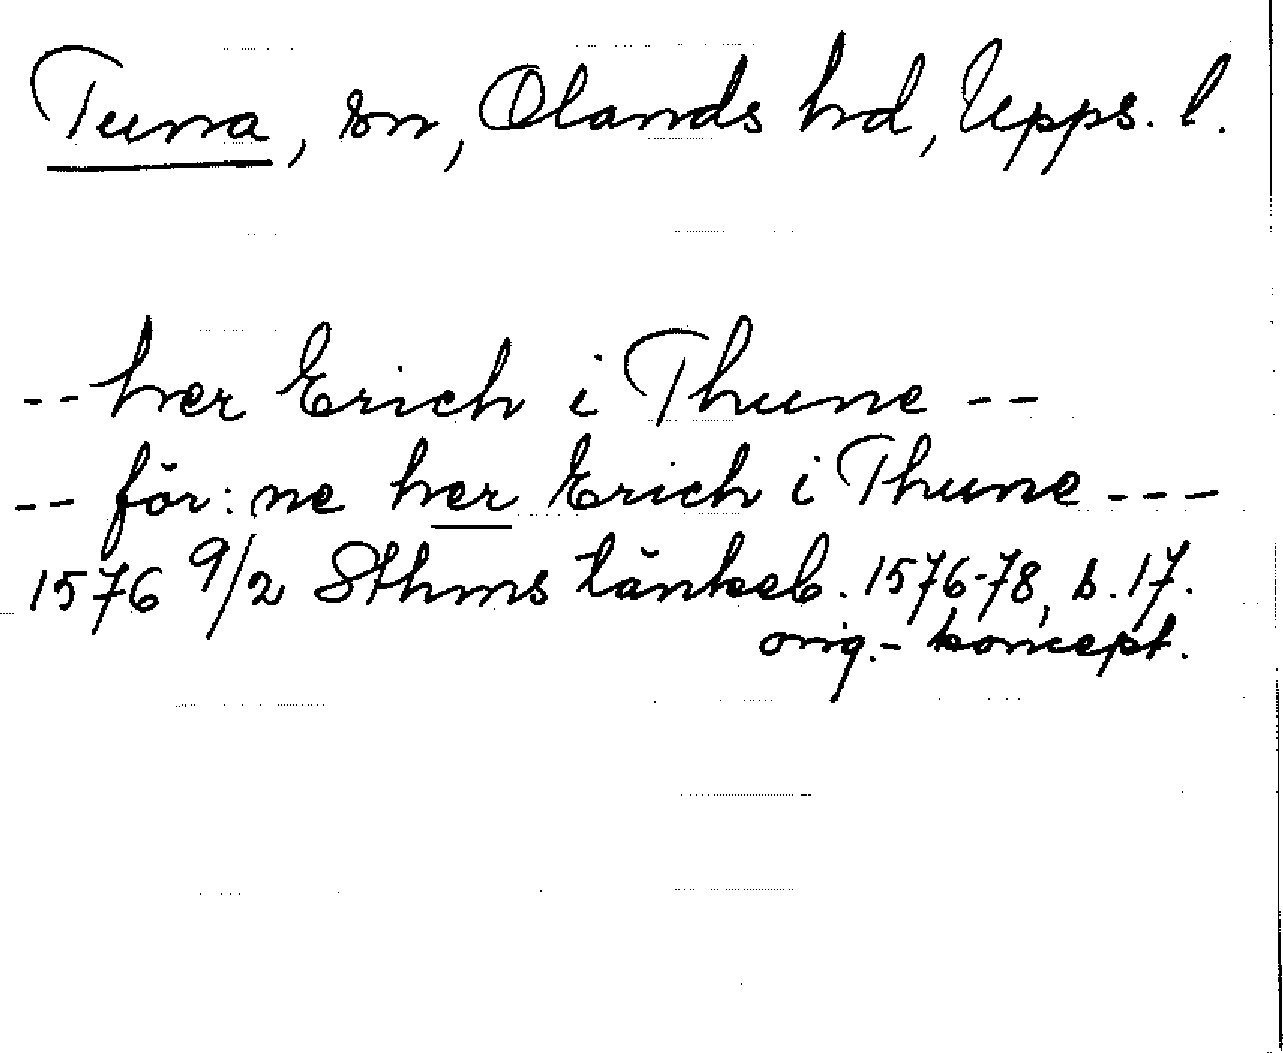 Tuna, sn, Olands hd, Upps. l.
-- her Erich i Thune --
-- för: ne her Erich i Thune ---
1576 9/2 Sthms tänkeb. 1576-78, s. 17.
orig.- koncept.